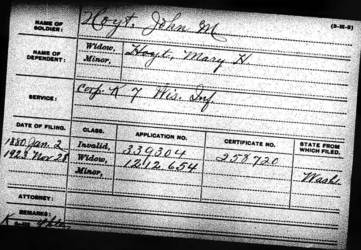 (3-3E-2)
NAME OF SOLDIER: Hoyt, John M
NAME OF DEPENDENT: Widow, Hoyt, Mary H.
Minor,
SERVICE: Corp. K 7 Wis. Inf.
DATE OF FILING. CLASS. APPLICATION NO. CERTIFICATE NO. STATE FROM WHICH FILED.
1880 Jan. 2 Invalid, 339304 258720
1923 Nov 28 Widow, 1212 654 Wash.
Minor,
ATTORNEY:
REMARKS: